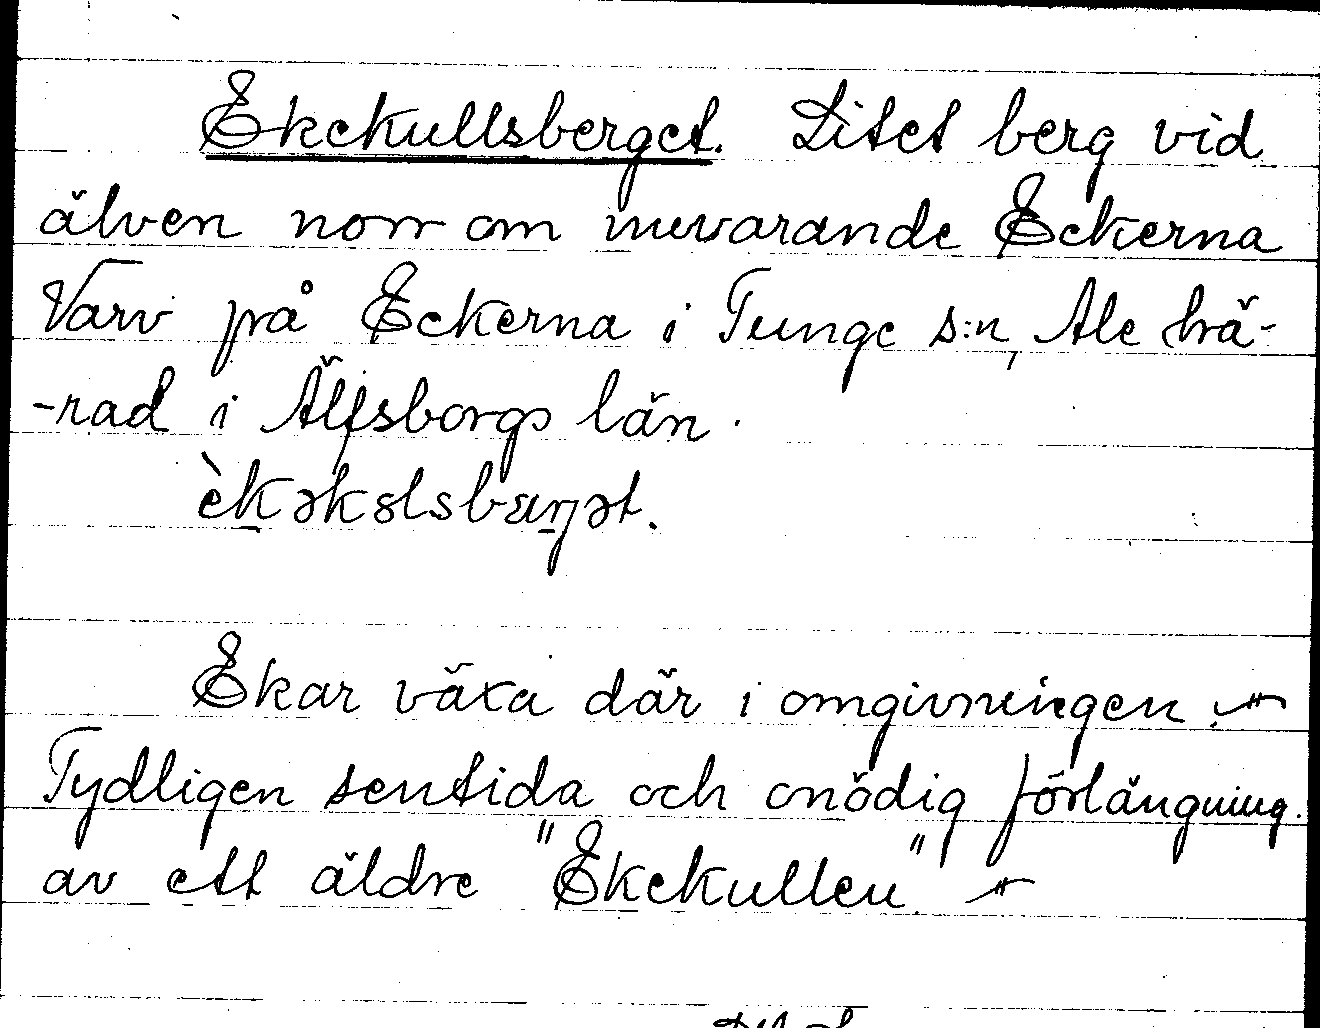 Ekekullsberget. Litet berg vid
älven norr om nuvarande Eckerna
Varv på Eckerna i Tunge s:n, Ale hä-
-rad i Älfsborgs län.
Ekar växa där i omgivningen.
Tydligen sentida och onödig förlängning
av ett äldre "Ekekullen"